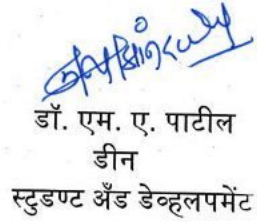 डॉ. एम. ए. पाटील
डीन
स्टुडण्ट अँड डेव्हलपमेंट